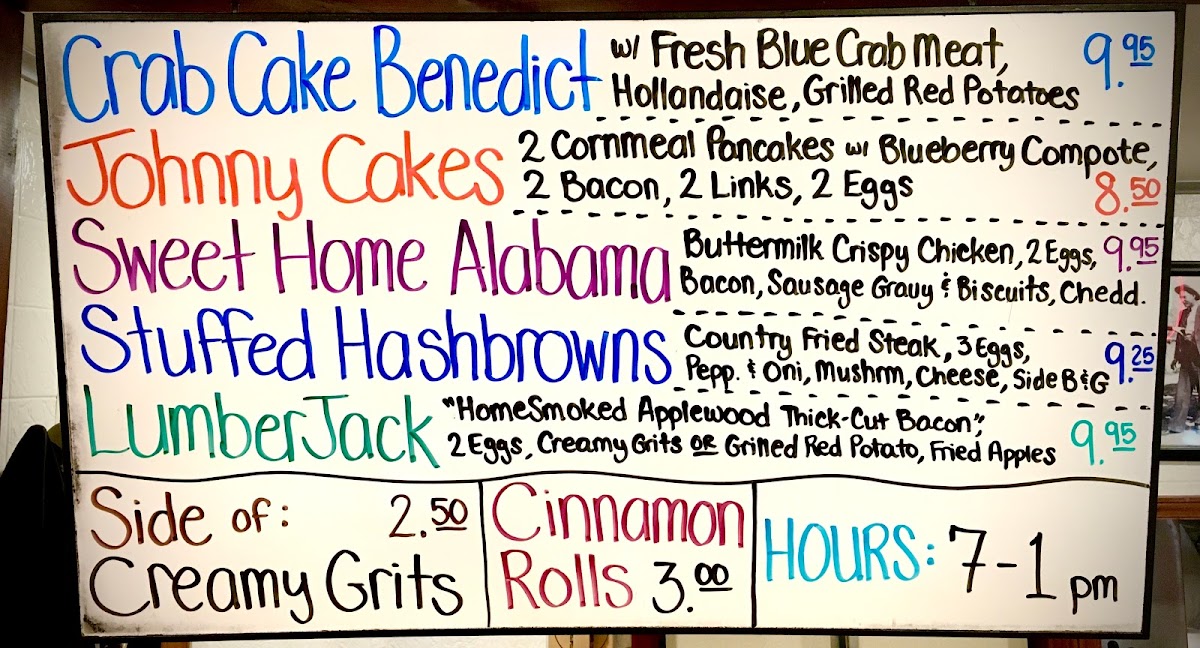 Crab Cake Benedict w/ Fresh Blue Crab Meat, 9.95
Hollandaise, Grilled Red Potatoes
Johnny Cakes 2 Cornmeal Pancakes w/ Blueberry Compote,
2 Bacon, 2 Links, 2 Eggs 8.50
Sweet Home Alabama Buttermilk Crispy Chicken, 2 Eggs, 9.95
Bacon, Sausage Gravy & Biscuits, Chedd.
Stuffed Hashbrowns Country Fried Steak, 3 Eggs, 9.25
Pepp. & Oni, Mushrm, Cheese, Side B&G
LumberJack "HomeSmoked Applewood Thick-Cut Bacon",
2 Eggs, Creamy Grits OR Grilled Red Potato, Fried Apples 9.95
Side of: 2.50
Creamy Grits
Cinnamon
Rolls 3.00
HOURS: 7-1 pm